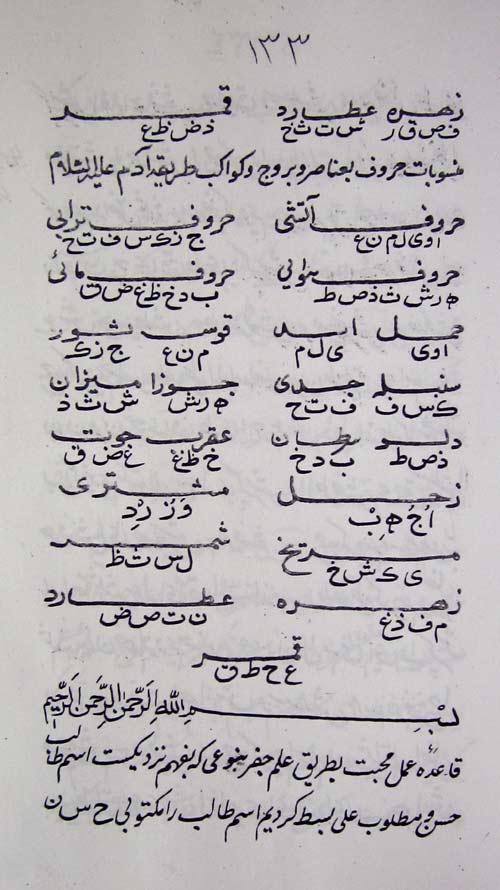 ۱۳۳
زهره عطارد قمر
ف ص ق ر ش ت ث خ ذ ض ظ غ
منسوبات حروف بعناصر و بروج و کواکب طریقه آدم علیه السلام
حروف آتشی حروف ترابی
ا و ی ل م ن ع ج ز ک س ف ت ح
حروف هوایی حروف مائی
ه ر ش ث ذ ص ط ب د خ ظ غ ض ق
حمل اسد قوس ثور
ا و ی ی ل م م ن ع ج ز ک
سنبله جدی جوزا میزان
ک س ف ف ت ح ه ر ش ش ث ذ
دلو سرطان عقرب حوت
ذ ص ط ب د خ خ ظ غ غ ض ق
زحل مشتری
ا ج ه ب و ز ر د
مریخ شمس
ی ک ش خ ل س ث ظ
زهره عطارد
م ف ذ غ ن ت ص ض
قمر
ع ح ط ق
بسم الله الرحمن الرحیم
قاعده عمل محبت بطریق علم جفر بنوعی که بفهم نزدیکست اسم طالب
حسن و مطلوب علی بسط کردیم اسم طالب را مکتوبی ح س ن